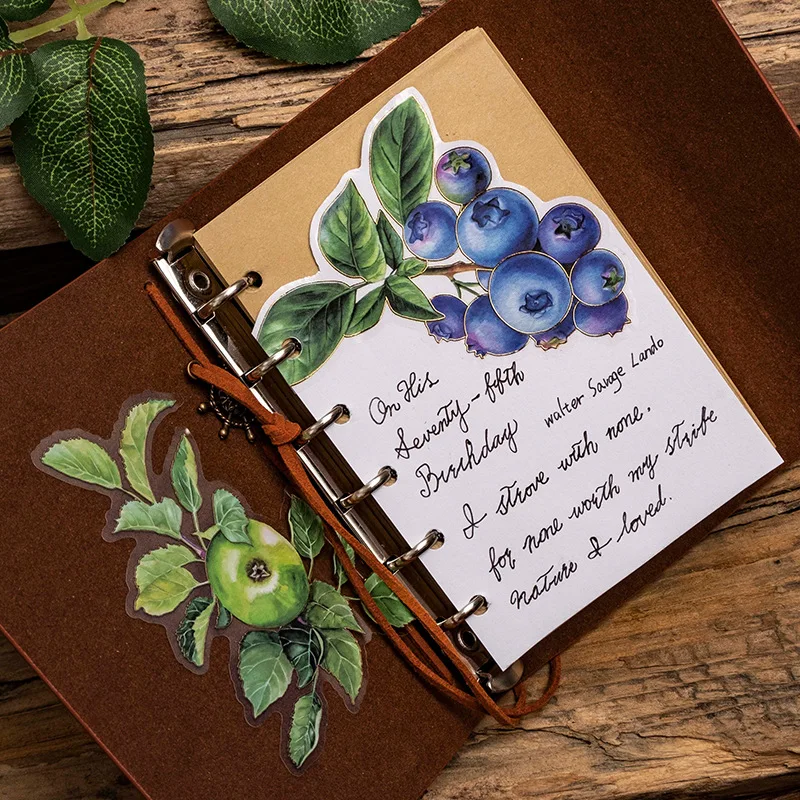 On His
Seventy-fifth
Birthday walter Savage Lando
I strove with none.
for none worth my strife
Nature I loved.